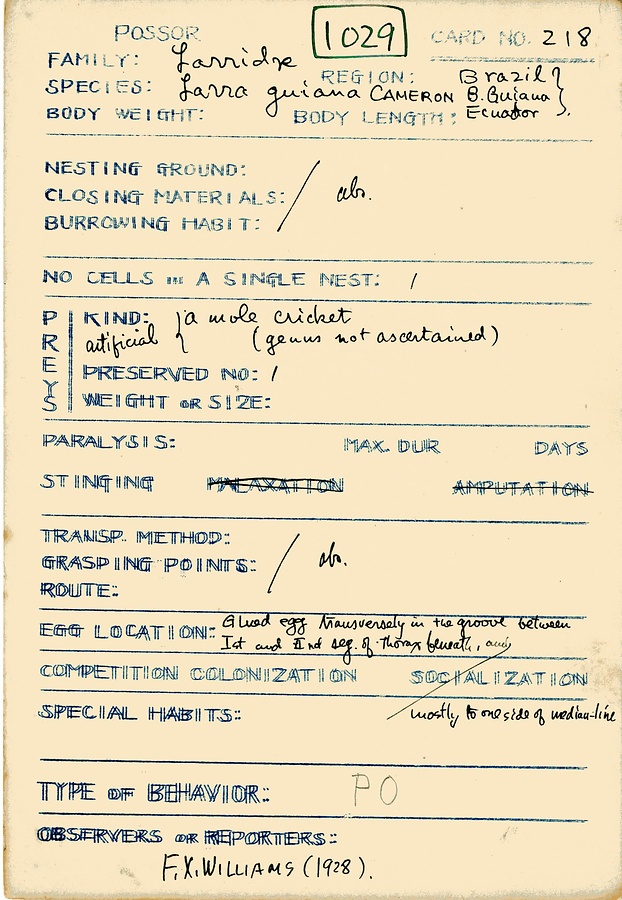 POSSOR 1029 CARD NO. 218
FAMILY: Larridæ
REGION: Brazil
SPECIES: Larra guiana CAMERON B. Guiana
BODY WEIGHT: BODY LENGTH: Ecuador
NESTING GROUND:
CLOSING MATERIALS: / abs.
BURROWING HABIT:
NO CELLS IN A SINGLE NEST: 1
PREYS
KIND: a mole cricket
artificial (genus not ascertained)
PRESERVED NO: 1
WEIGHT OR SIZE:
PARALYSIS: MAX. DUR DAYS
STINGING MALAXATION AMPUTATION
TRANSP. METHOD:
GRASPING POINTS: / abs.
ROUTE:
EGG LOCATION: Glued egg transversely in the groove between
Ist and IInd seg. of thorax beneath, and
COMPETITION COLONIZATION SOCIALIZATION
SPECIAL HABITS: mostly to one side of median-line
TYPE OF BEHAVIOR: PO
OBSERVERS OR REPORTERS:
F.X. WILLIAMS (1928).